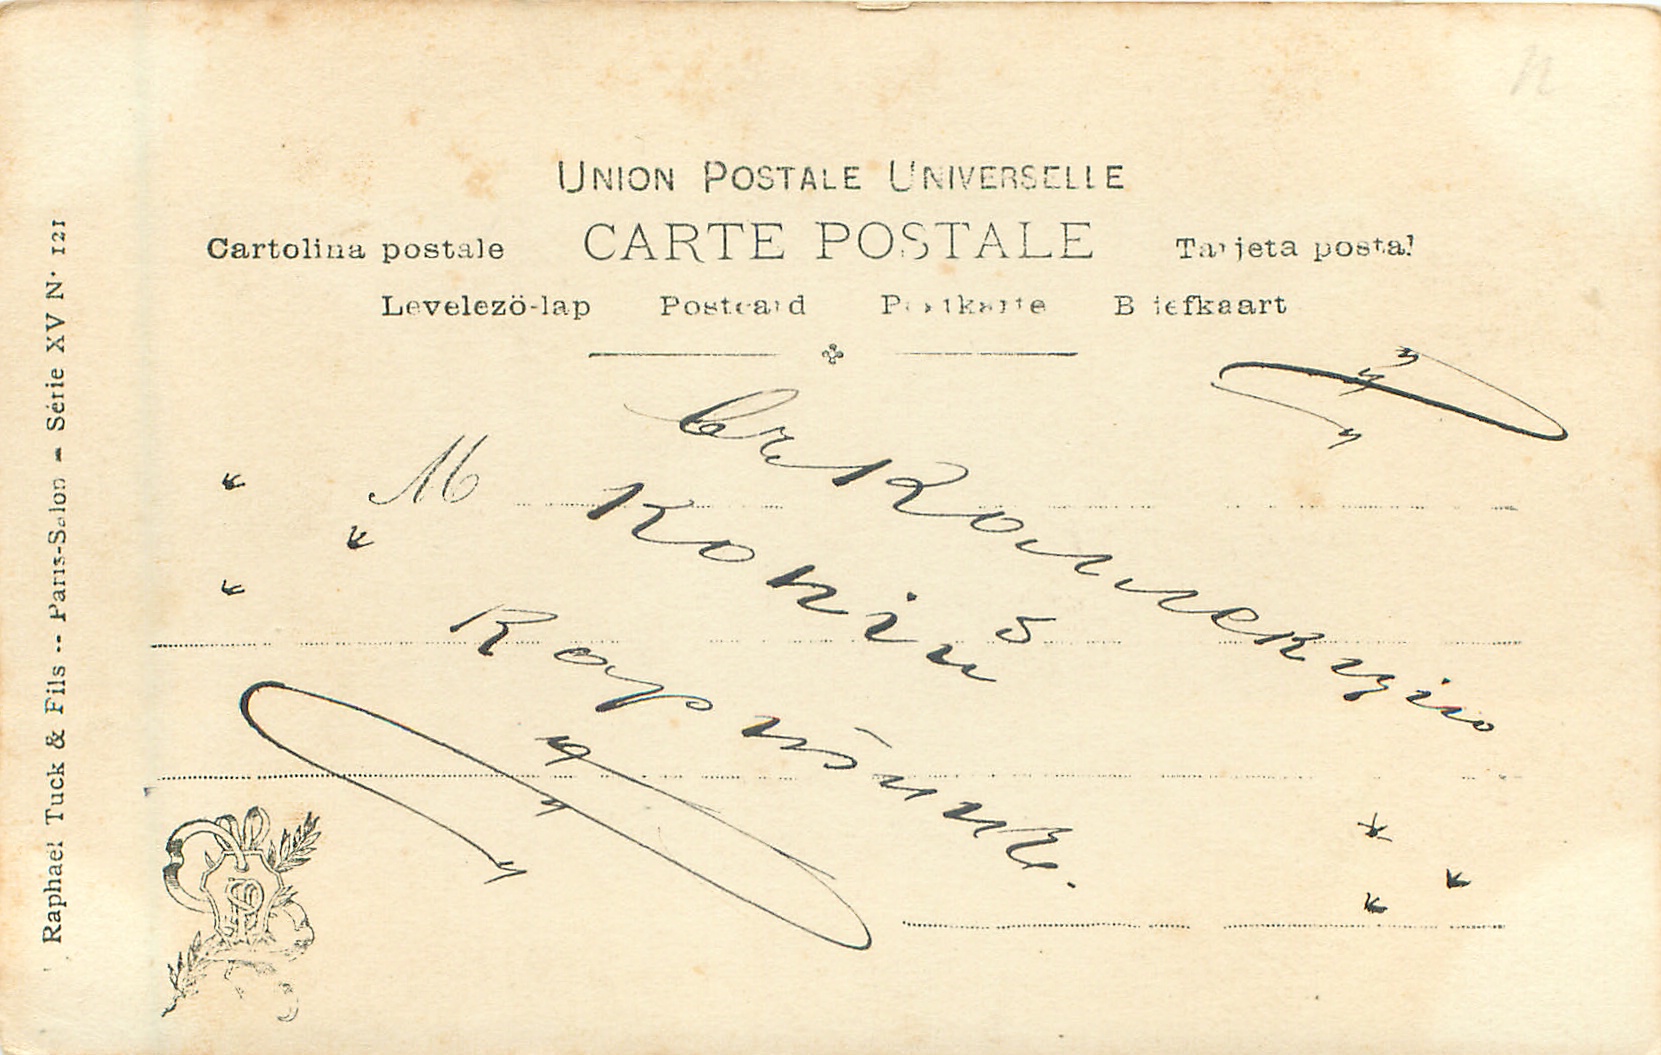 UNION POSTALE UNIVERSELLE
Cartolina postale CARTE POSTALE Tarjeta postal
Levelezö-lap Postcard Postkarte Briefkaart
M
Въ Коллекцію
Копій
Картинъ.
Raphael Tuck & Fils -- Paris-Salon - Série XV N° 121